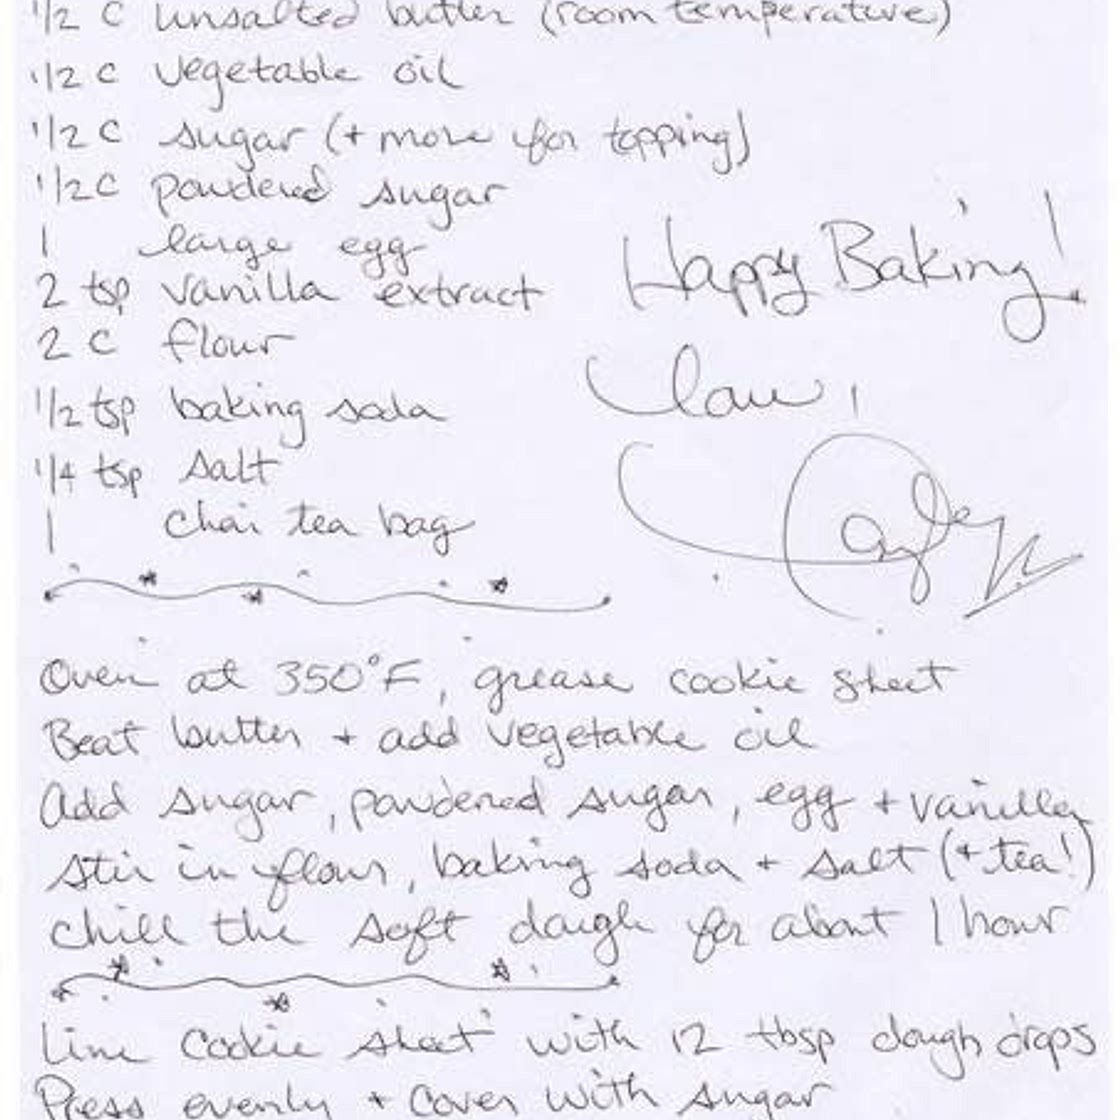 1/2 C unsalted butter (room temperature)
1/2 C vegetable oil
1/2 C sugar (+ more for topping)
1/2 C powdered sugar
1 large egg
2 tsp vanilla extract
2 C flour
1/2 tsp baking soda
1/4 tsp salt
1 chai tea bag
Happy Baking!
Oven at 350°F, grease cookie sheet
Beat butter + add vegetable oil
Add sugar, powdered sugar, egg + vanilla
Stir in flour, baking soda + salt (+ tea!)
Chill the soft dough for about 1 hour
Line cookie sheet with 12 tbsp dough drops
Press evenly + cover with sugar